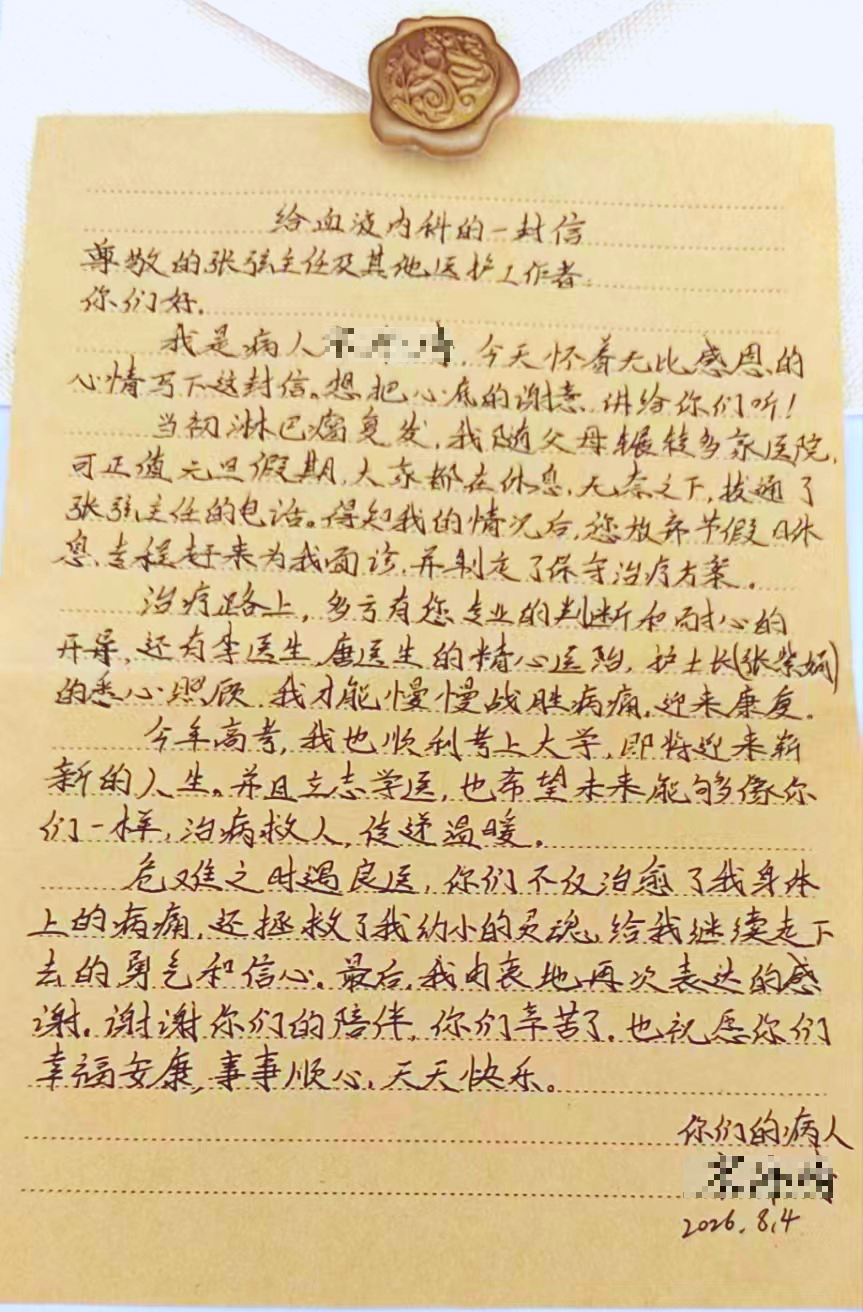 给血液内科的一封信
尊敬的张弦主任及其他医护工作者:
你们好.
我是病人 ,今天怀着无比感恩的
心情写下这封信。想把心底的谢意,讲给你们听!
当初淋巴瘤复发,我随父母辗转多家医院,
可正值元旦假期,大家都在休息,无奈之下,拨通了
张弦主任的电话。得知我的情况后,您放弃节假日休
息,专程赶来为我面诊,并制定了保守治疗方案.
治疗路上,多亏有您专业的判断和耐心的
开导,还有李医生,唐医生的精心医治,护士长(张紫 )
的悉心照顾,我才能慢慢战胜病痛,迎来康复.
今年高考,我也顺利考上大学,即将迎来崭
新的人生。并且立志学医,也希望未来能够像你
们一样,治病救人,传递温暖.
危难之时遇良医,你们不仅治愈了我身体
上的病痛,还拯救了我幼小的灵魂,给我继续走下
去的勇气和信心。最后,我由衷地再次表达的感
谢.谢谢你们的陪伴,你们辛苦了.也祝愿你们
幸福安康,事事顺心,天天快乐。
你们的病人
2026.8.4